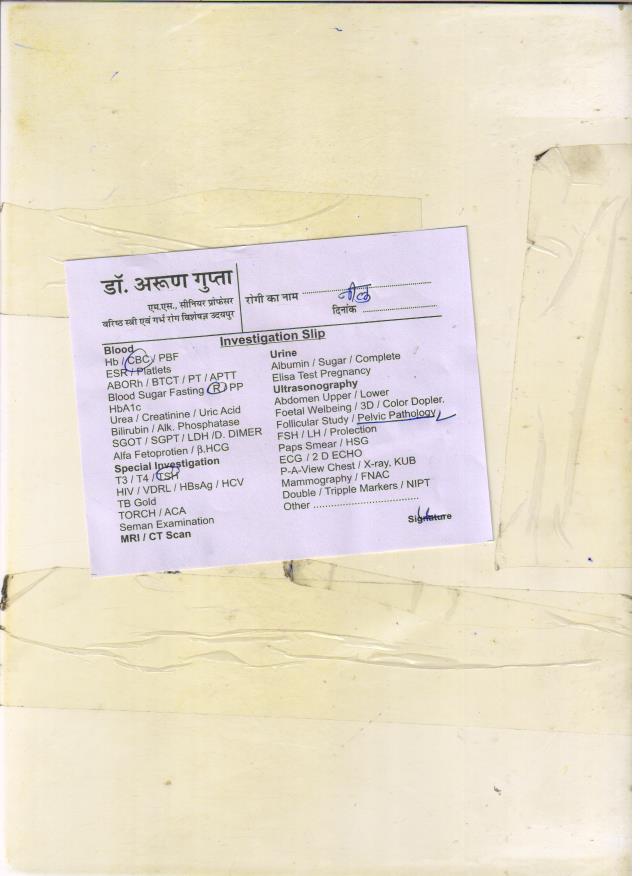 डॉ. अरूण गुप्ता
एम.एस., सीनियर प्रोफेसर
वरिष्ठ स्त्री एवं गर्भ रोग विशेषज्ञ उदयपुर
रोगी का नाम
दिनांक
Investigation Slip
Blood
Hb / CBC / PBF
ESR / Platlets
ABORh / BTCT / PT / APTT
Blood Sugar Fasting / R / PP
HbA1c
Urea / Creatinine / Uric Acid
Bilirubin / Alk. Phosphatase
SGOT / SGPT / LDH /D. DIMER
Alfa Fetoprotien / β.HCG
Special Investigation
T3 / T4 / TSH
HIV / VDRL / HBsAg / HCV
TB Gold
TORCH / ACA
Seman Examination
MRI / CT Scan
Urine
Albumin / Sugar / Complete
Elisa Test Pregnancy
Ultrasonography
Abdomen Upper / Lower
Foetal Welbeing / 3D / Color Dopler.
Follicular Study / Pelvic Pathology
FSH / LH / Prolection
Paps Smear / HSG
ECG / 2 D ECHO
P-A-View Chest / X-ray. KUB
Mammography / FNAC
Double / Tripple Markers / NIPT
Other ................................
Signature